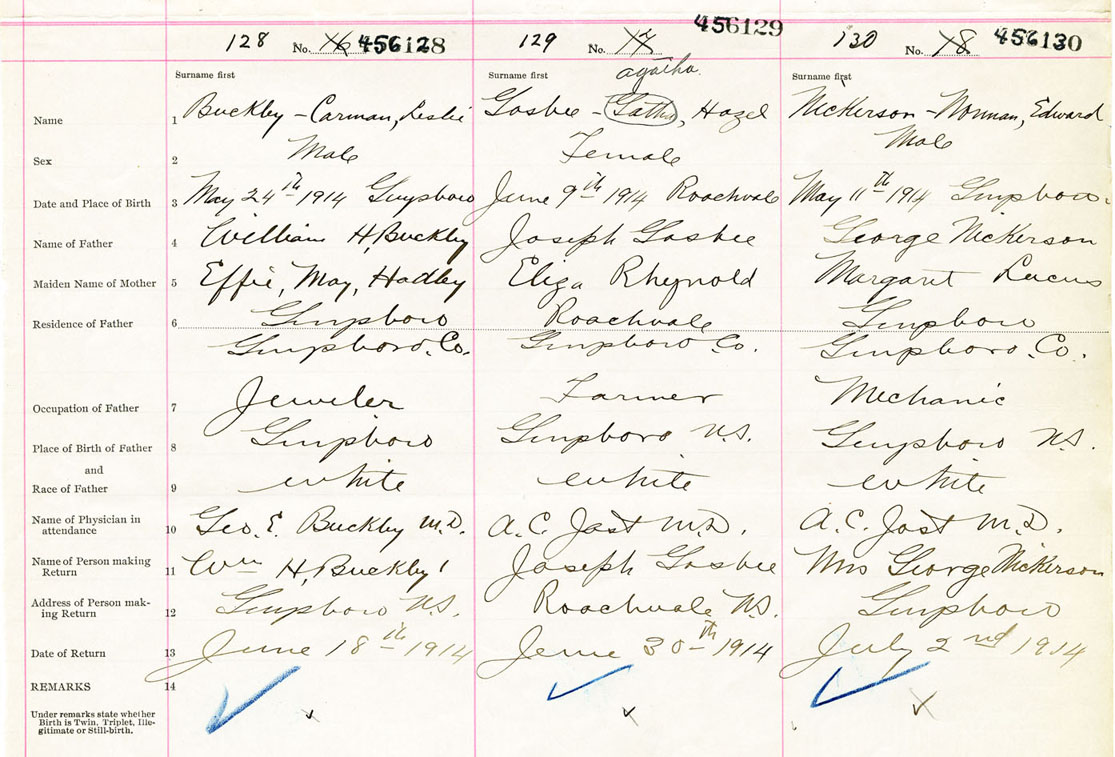 128 No. 16 456128 129 No. 17 456129 130 No. 18 456130
Surname first Surname first agatha. Surname first
Name 1 Buckley - Carman, Leslie Gosbee - Gatha, Hazel Nickerson - Norman, Edward
Sex 2 Male Female Male
Date and Place of Birth 3 May 24th 1914 Guysboro June 9th 1914 Roachvale May 11th 1914 Guysboro.
Name of Father 4 William H. Buckley Joseph Gosbee George Nickerson
Maiden Name of Mother 5 Effie, May, Hadley Eliza Rhynold Margaret Lucus
Residence of Father 6 Guysboro Roachvale Guysboro
Guysboro. Co. Guysboro Co. Guysboro. Co.
Occupation of Father 7 Jeweler Farmer Mechanic
Place of Birth of Father 8 Guysboro Guysboro N.S. Guysboro N.S.
and
Race of Father 9 White White White
Name of Physician in
attendance 10 Geo. E. Buckley M.D. A. C. Jost M.D. A. C. Jost M.D.
Name of Person making
Return 11 Wm H. Buckley Joseph Gosbee Mrs George Nickerson
Address of Person mak-
ing Return 12 Guysboro N.S. Roachvale N.S. Guysboro
Date of Return 13 June 18th 1914 June 30th 1914 July 2nd 1914
REMARKS 14
Under remarks state whether
Birth is Twin, Triplet, Ille-
gitimate or Still-birth.